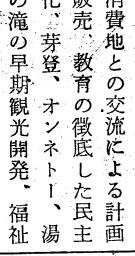 消費地との交流による計画
販売、教育の徹底した民主
化、芽登、オンネトー、湯
の滝の早期観光開発、福祉